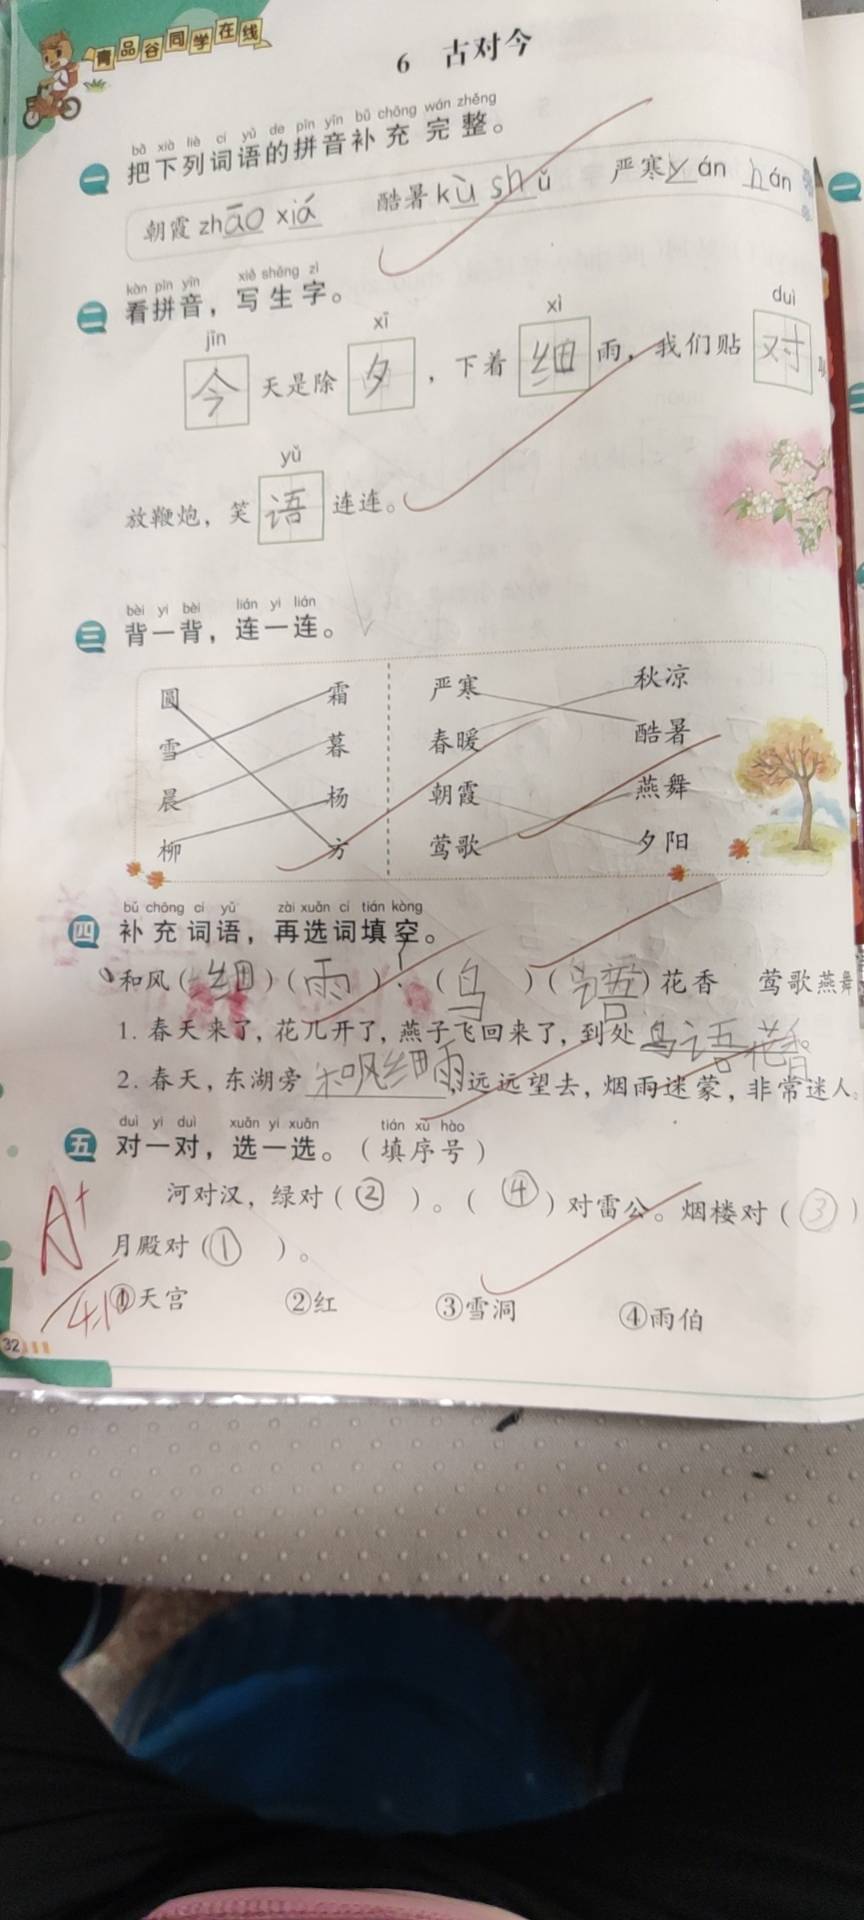 青品谷同学在线
6 古对今
bǎ xià liè cí yǔ de pīn yīn bǔ chōng wán zhěng
一 把下列词语的拼音补充完整。
朝霞 zhāo xiá 酷暑 kù shǔ 严寒 yán hán
kàn pīn yīn xiě shēng zì
二 看拼音，写生字。
jīn xī xì duì
今天是除夕，下着细雨，我们贴对
yǔ
放鞭炮，笑语连连。
bèi yi bèi lián yi lián
三 背一背，连一连。
圆 霜 严寒 秋凉
雪 暮 春暖 酷暑
晨 杨 朝霞 燕舞
柳 方 莺歌 夕阳
bǔ chōng cí yǔ zài xuǎn cí tián kòng
四 补充词语，再选词填空。
和风(细)(雨) (鸟)(语)花香 莺歌燕舞
1. 春天来了，花儿开了，燕子飞回来了，到处鸟语花香
2. 春天，东湖旁和风细雨，远远望去，烟雨迷蒙，非常迷人。
duì yi duì xuǎn yi xuǎn tián xù hào
五 对一对，选一选。（填序号）
河对汉，绿对（②）。（④）对雷公。烟楼对（③）
月殿对（①）。
A+
①天宫 ②红 ③雪洞 ④雨伯
4.10
32